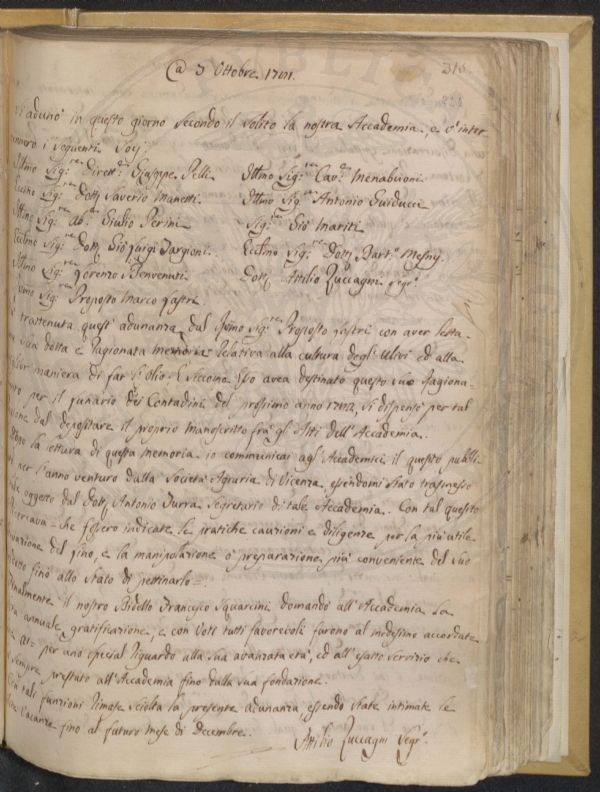 @ 3 Ottobre 1781.
315
adunò in questo giorno secondo il solito la nostra Accademia, e v'inter
vennero i seguenti Soci
Illmo Sig.re Dirett.re Giuseppe Pelli
Illmo Sig.re Cav.re Menabuoni
Eccmo Sig.re Dott. Saverio Manetti
Illmo Sig.re Antonio Guiducci
Illmo Sig.re Ab.te Giulio Perini
Sig.re Gio Mariti
Eccmo Sig.re Dott. Gio Luigi Targioni
Eccmo Sig.re Dott. Bart.o Mesny
Illmo Sig.re Lorenzo Benvenuti
Dott. Attilio Zuccagni Segr.o
Sig.re Proposto Marco Lastri
trattenuta quest'adunanza dal Sig.re Proposto Lastri con aver letta
sua dotta e ragionata memoria relativa alla cultura degl'Ulivi ed alla
maniera di far l'Olio. E siccome avea destinato questo suo ragiona
per il Lunario dei Contadini del prossimo anno 1782, si dispensò per tal
dal depositare il proprio manoscritto fra gl'Atti dell'Accademia.
la lettura di questa memoria io communicai agl'Accademici il quesito pubbli
per l'anno venturo dalla Società Agraria di Vicenza, essendomi stato trasmesso
oggetto dal Dott. Antonio Turra Segretario di tale Accademia. Con tal quesito
= che fossero indicate le pratiche cauzioni e diligenze per la più utile
del Lino, e la manipolazione o preparazione più conveniente del suo
fino allo stato di pettinarlo =.
Finalmente il nostro Bidello Francesco Squarcini domandò all'Accademia la
annuale gratificazione, e con Voti tutti favorevoli furono al medesimo accordate
per uno special riguardo alla sua avanzata età, ed all'esatto servizio che
sempre prestato all'Accademia fino dalla sua fondazione.
Con tali funzioni rimase sciolta la presente adunanza essendo state intimate le
Vacanze fino al futuro mese di Decembre.
Attilio Zuccagni Segr.o